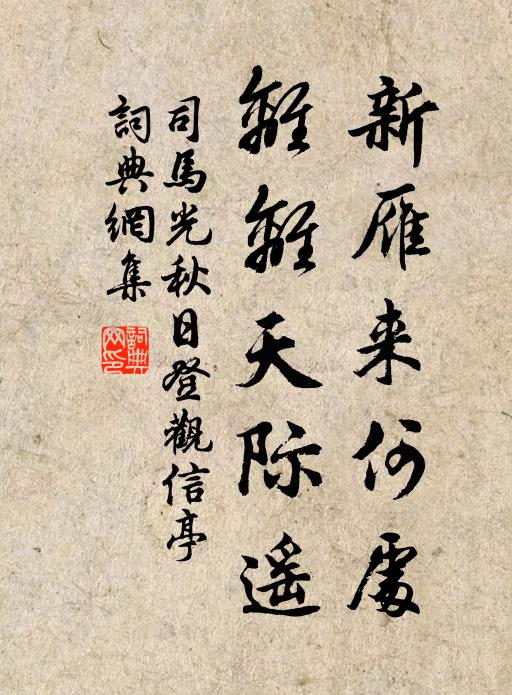 新雁来何處
離離天际遥
司馬光秋日登觀信亭
詞典網集
詞典
网印